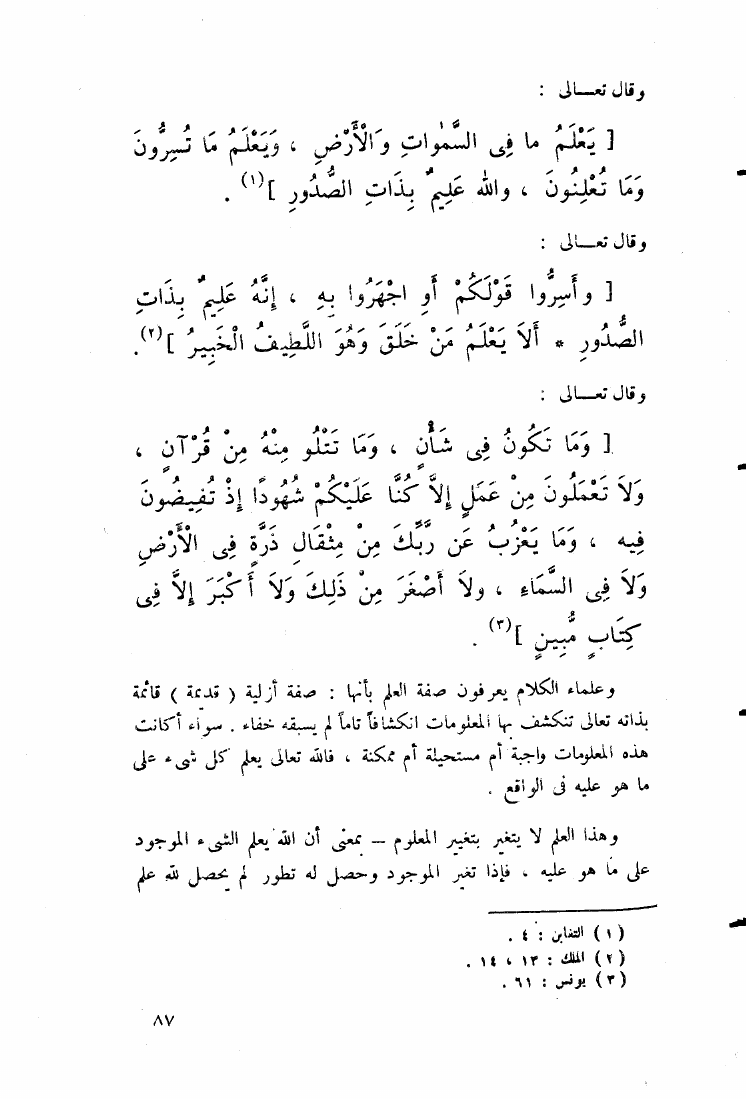 وقال تعـــالى :
[ يَعْلَمُ ما فِى السَّمٰواتِ وَالْأَرْضِ ، وَيَعْلَمُ مَا تُسِرُّونَ
وَمَا تُعْلِنُونَ ، والله عَلِيمٌ بِذَاتِ الصُّدُورِ ](١) .
وقال تعـــالى :
[ وأَسِرُّوا قَوْلَكُمْ أَو اجْهَرُوا بِهِ ، إِنَّهُ عَلِيمٌ بِذَاتِ
الصُّدُورِ * أَلاَ يَعْلَمُ مَنْ خَلَقَ وَهُوَ اللَّطِيفُ الْخَبِيرُ ](٢).
وقال تعـــالى :
[ وَمَا تَكُونُ فِى شَأْنٍ ، وَمَا تَتْلُو مِنْهُ مِنْ قُرْآنٍ ،
وَلاَ تَعْمَلُونَ مِنْ عَمَلٍ إِلاَّ كُنَّا عَلَيْكُمْ شُهُودًا إِذْ تُفِيضُونَ
فِيه ، وَمَا يَعْزُبُ عَن رَّبِّكَ مِنْ مِثْقَالِ ذَرَّةٍ فِى الْأَرْضِ
وَلاَ فِى السَّمَاءِ ، ولاَ أَصْغَرَ مِنْ ذَلِكَ وَلاَ أَكْبَرَ إِلاَّ فِى
كِتَابٍ مُّبِينٍ ](٣) .
وعلماء الكلام يعرفون صفة العلم بأنها : صفة أزلية ( قديمة ) قائمة
بذاته تعالى تنكشف بها المعلومات انكشافاً تاماً لم يسبقه خفاء . سواء أكانت
هذه المعلومات واجبة أم مستحيلة أم ممكنة ، فالله تعالى يعلم كل شىء على
ما هو عليه فى الواقع .
وهذا العلم لا يتغير بتغيير المعلوم – بمعنى أن الله يعلم الشىء الموجود
على ما هو عليه ، فإذا تغير الموجود وحصل له تطور لم يحصل لله علم
( ١ ) التغابن : ٤ .
( ٢ ) الملك : ١٣ ، ١٤ .
( ٣ ) يونس : ٦١ .
٨٧